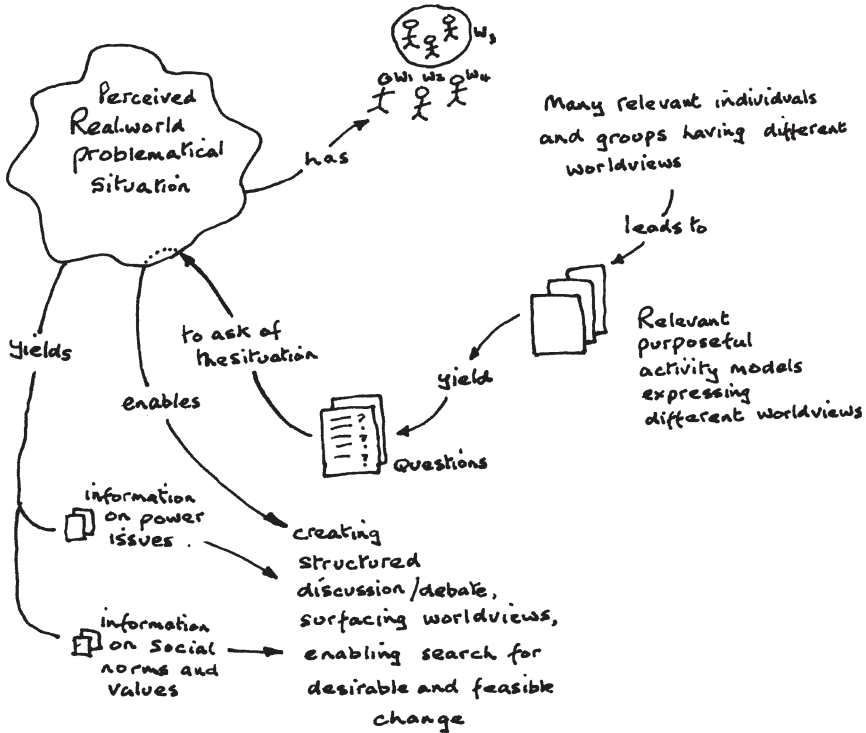 Perceived
Real-world
problematical
situation
has
W3
W1 W2 W4
Many relevant individuals
and groups having different
worldviews
leads to
Relevant
purposeful
activity models
expressing
different worldviews
yield
? 
?
?
?
Questions
to ask of
the situation
yields
enables
information
on power
issues
information
on social
norms and
values
creating
structured
discussion/debate,
surfacing worldviews,
enabling search for
desirable and feasible
change